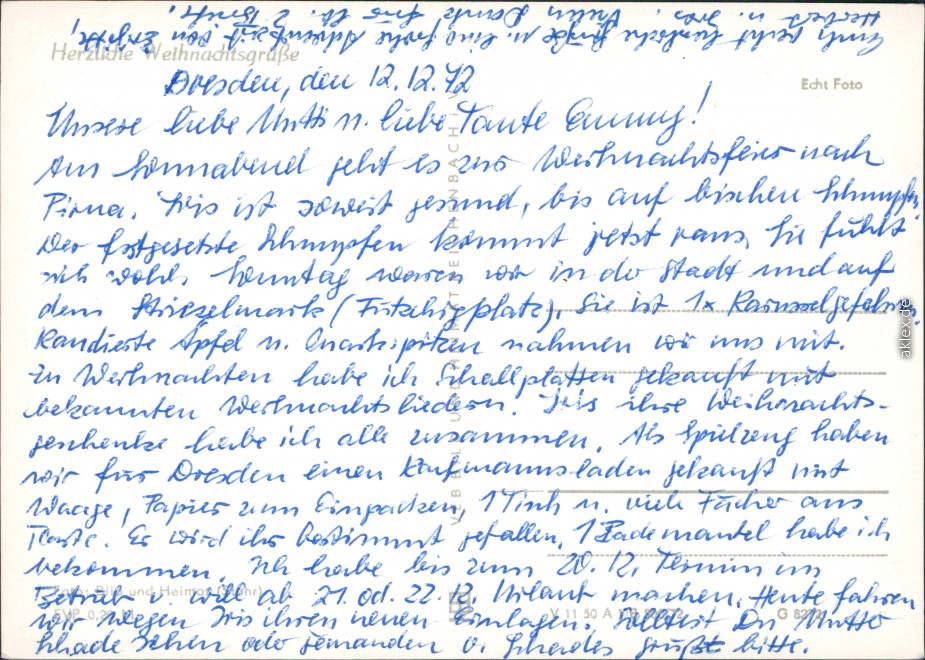 Herzliche Weihnachtsgrüße
Echt Foto
Dresden, den 12.12.72
Unsere liebe Mutti u. liebe Tante Emmy!
Am Sonnabend geht es zur Weihnachtsfeier nach
Pirna. Iris ist soweit gesund, bis auf bischen Schnupfen,
der festgesetzte Schnupfen kommt jetzt raus. Sie fühlt
sich wohl. Sonntag waren wir in der Stadt und auf
dem Striezelmarkt (Futschigplatz). Sie ist 1x Karussel gefahren.
Kandierte Äpfel u. Quarkspitzen nahmen wir uns mit.
Zu Weihnachten habe ich Schallplatten gekauft mit
bekannten Weihnachtsliedern. Iris ihre Weihnachts-
geschenke habe ich alle zusammen. Als Spielzeug haben
wir für Dresden einen Kaufmannsladen gekauft mit
Waage, Papier zum Einpacken, 1 Tisch u. viele Fächer aus
Plaste. Er wird ihr bestimmt gefallen. 1 Bademantel habe ich
bekommen. Ich habe bis zum 20.12. Termin im
Betrieb u. will ab 21. od. 22.12. Urlaub machen. Heute fahren
wir wegen Iris ihren neuen Einlagen. Solltest Du Mutter
Schade sehen oder jemanden v. Schades grüßt bitte.
Euch recht herzliche Grüße u. eine frohe Adventszeit von Brigitte,
Herbert u. Iris. Vielen Dank für lb. 2 Briefe.
Foto: Bild und Heimat
EVP 0,20 M
V 11 50 A 1/B
G 82
aklex.de